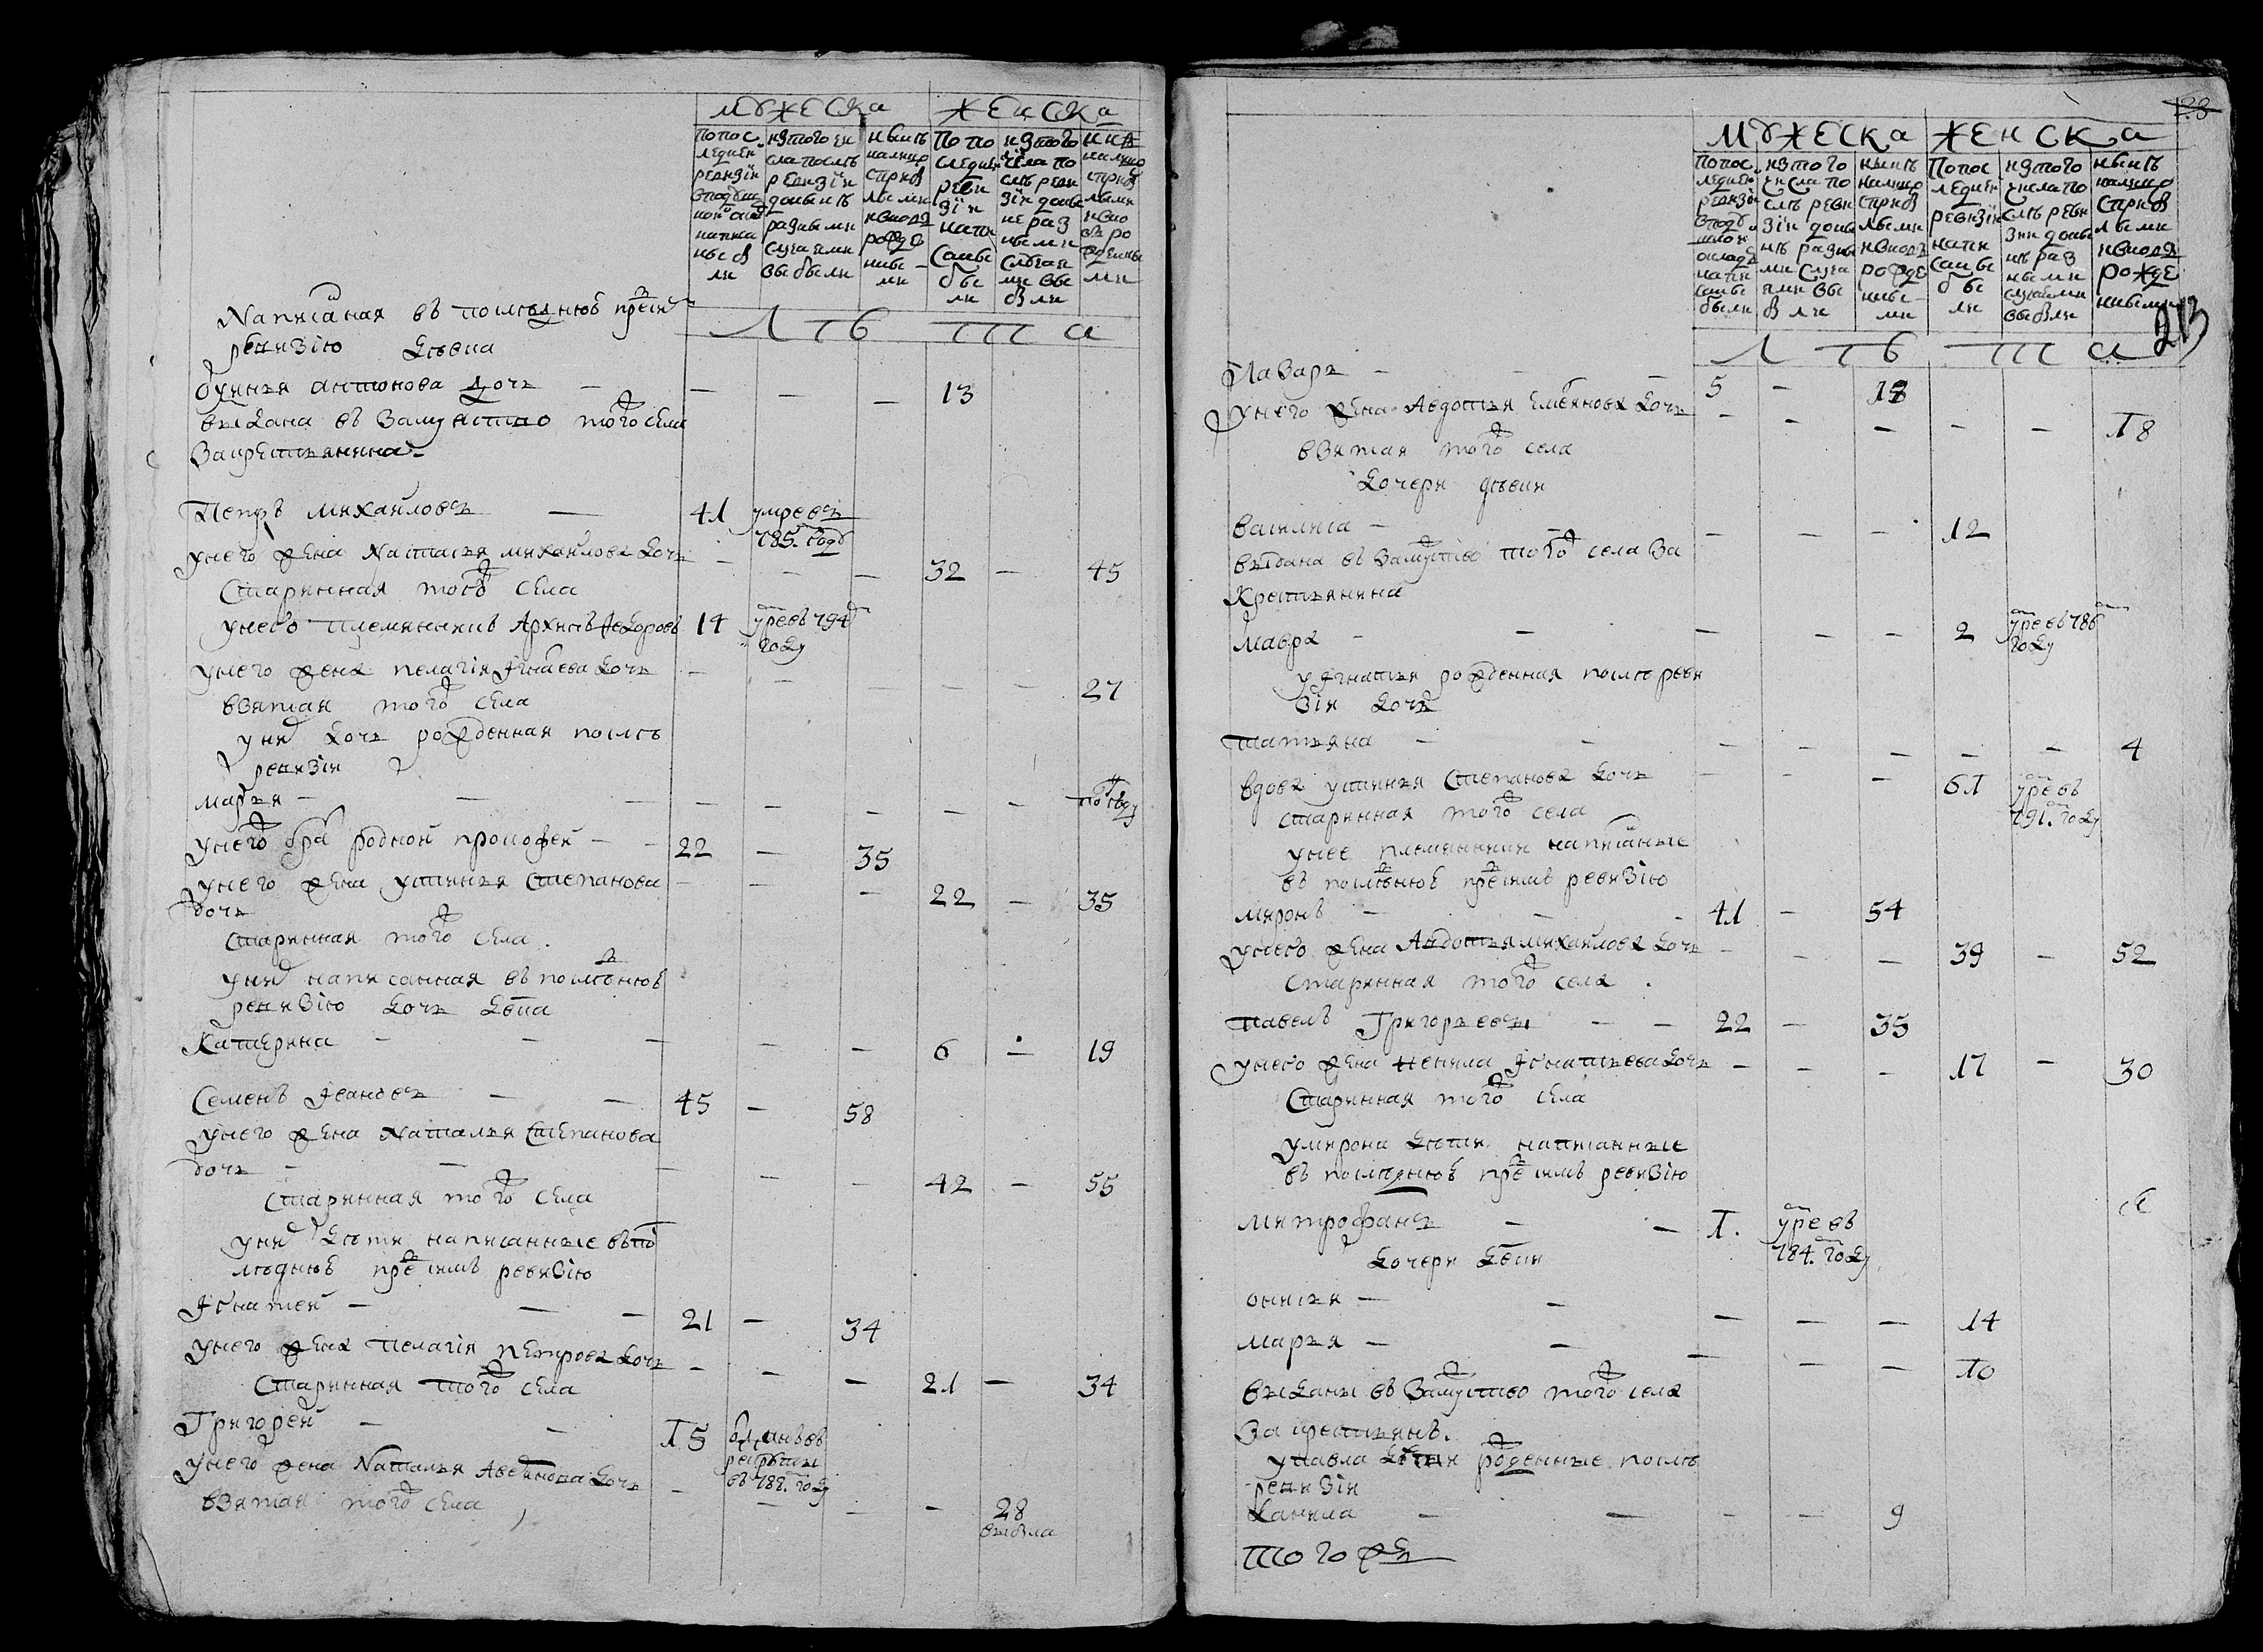 МУЖЕСКА ЖЕНСКА
по последней ревизии в подушной оклад написаны были
из того числа после ревизии до ныне разными случаями выбыли
ныне налицо с прибылыми и вновь рожденными
по последней ревизии написаны были
из того числа после ревизии до ныне разными случаями выбыли
ныне налицо с прибылыми и вновь рожденными
ЛѢТА
Написаная въ последнюю пре
ревизïю девка
антонова дочь — — — — 13
выдана въ замужство того села
за крестьянина
Петръ михайловъ — 41 умре въ
785. году
у него жена Наталья михайлова дочь — — — 32 — 45
старинная того села
у него племянникъ Архипъ Федоровъ 14 умре въ 794
году
у него жена пелагiя Iгнаева дочь — — — — — 27
взятая того села
у них дочь рожденная после
ревизiи
марья — — — — — — — —
у него бра родной прокофей — — 22 — 35
у него жена устинья Степанова — — — 22 — 35
дочь
старинная того села.
у них написанная въ последнюю
ревизiю дочь девка
Катерина — — — — — 6 — 19
Семенъ Iвановъ — — 45 — 58
у него жена Наталья Степанова
дочь — — — — — 42 — 55
старинная того села
у них дети написанные въ по
следнюю пре ревизiю
Iгнатей — — — 21 — 34
у него жена Пелагiя петрова дочь — — — 21 — 34
старинная того села
Григорей — — 15 въ
рекруты
въ 788. году
у него жена Наталья дочь — — — — 28
выбыла
взятая того села
28
МУЖЕСКА ЖЕНСКА
по последней ревизiи в подушной оклад написаны были
из того числа после ревизiи до ныне разными случаями выбыли
ныне налицо с прибылыми и вновь рожденными
по последней ревизiи написаны были
из того числа после ревизии до ныне разными случаями выбыли
ныне налицо с прибылыми и вновь рожденными
213
ЛѢТА
Лазарь — — — 5 — 18
у него жена Авдотья дочь — — — — — 18
взятая того села
дочери девки
василиса — — — — — 12
выдана въ замуство того села за
крестьянина
мавра — — — — — 2 умре въ 786
году
у игнатья рожденная после реви
зiи дочь
татьяна — — — — — — — 4
вдова устинья Степанова дочь — — — 61 умре въ
791. году
старинная того села
у нее племянники написаные
въ последнюю пре ревизiю
миронъ — — — 41 — 54
у него жена Авдотья михайлова дочь — — — 39 — 52
старинная того села.
павелъ Григорьевъ — — 22 — 35
у него жена ненила Iгнатьева дочь — — — 17 — 30
старинная того села
у мирона дети написанные
въ последнюю пре ревизiю
митрофанъ — — 1. умре въ
784. году
дочери девки
— — — — — 14
марья — — — — — 10
выданы въ замуство того села
за крестьянъ.
у павла дети рожденные после
ревизiи
данила — — — — 9
Того же